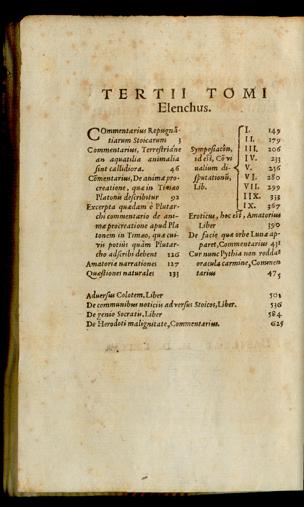 TERTII TOMI
Elenchus.
COmmentarius Repugnã-
tiarum Stoicarum 3
Commentarius, Terrestriáne
an aquatilia animalia
sint callidiora. 46
Cõmentarius, De animæ pro-
creatione, quæ in Timæo
Platonis describitur 92
Excerpta quædam è Plutar-
chi commentario de ani-
mæ procreatione apud Pla
tonem in Timæo, quæ cui-
vis potiùs quàm Plutar-
cho adscribi debent 126
Amatoriæ narrationes 127
Quæstiones naturales 133
Symposiacôn,
id est, Cõvi
valium di-
sputationũ,
Lib.
I. 149
II. 179
III. 206
IV. 233
V. 256
VI. 280
VII. 299
IIX. 333
IX. 367
Eroticus, hoc est, Amatorius
Liber 390
De facie quæ orbe Lunæ ap-
paret, Commentarius 431
Cur nunc Pythia non reddat
oracula carmine, Commen
tarius 475
Adversus Colotem, Liber 501
De communibus noticiis adversus Stoicos, Liber. 536
De genio Socratis, Liber 584
De Herodoti malignitate, Commentarius. 625